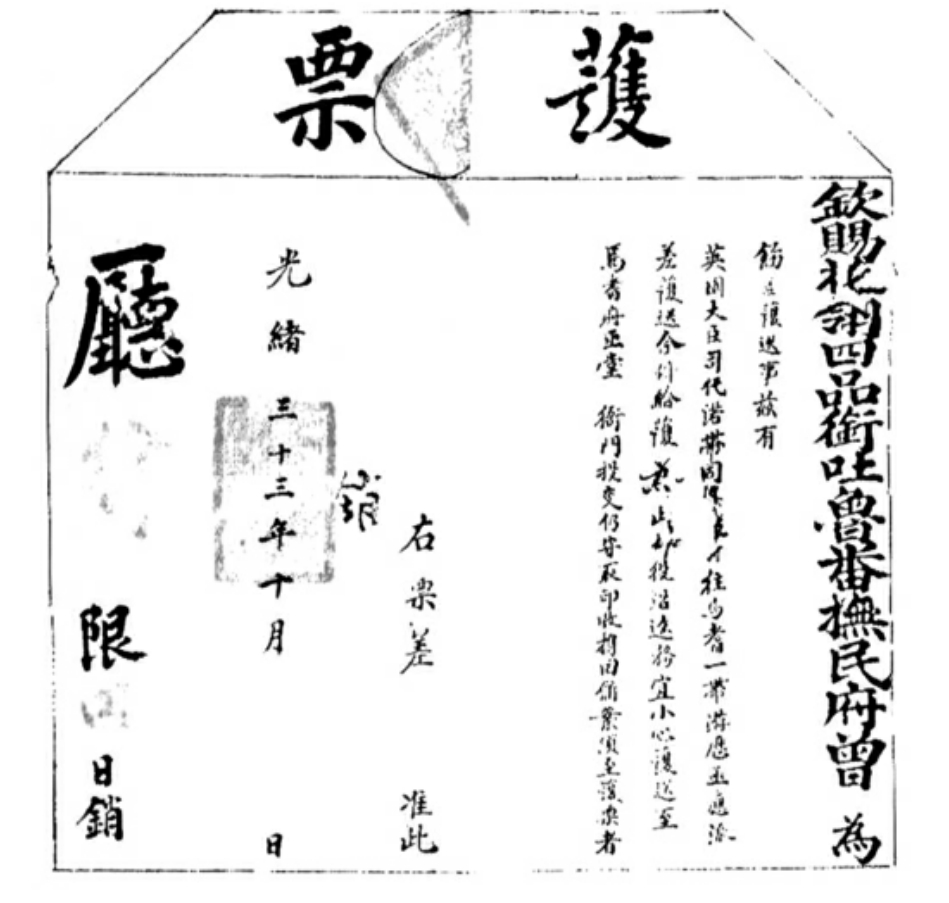 護票
欽賜花翎四品銜吐魯番撫民府曾 為
飭 護送事茲有
英國大臣司代諾帶同 往焉耆一帶游歷亟應派
差護送合行給護 為此 役沿途務宜小心護送至
焉耆府正堂 衙門投交仍守取印收持回銷票須至護票者
右票差 准此
光緒三十三年十月 日
廳 限 日銷